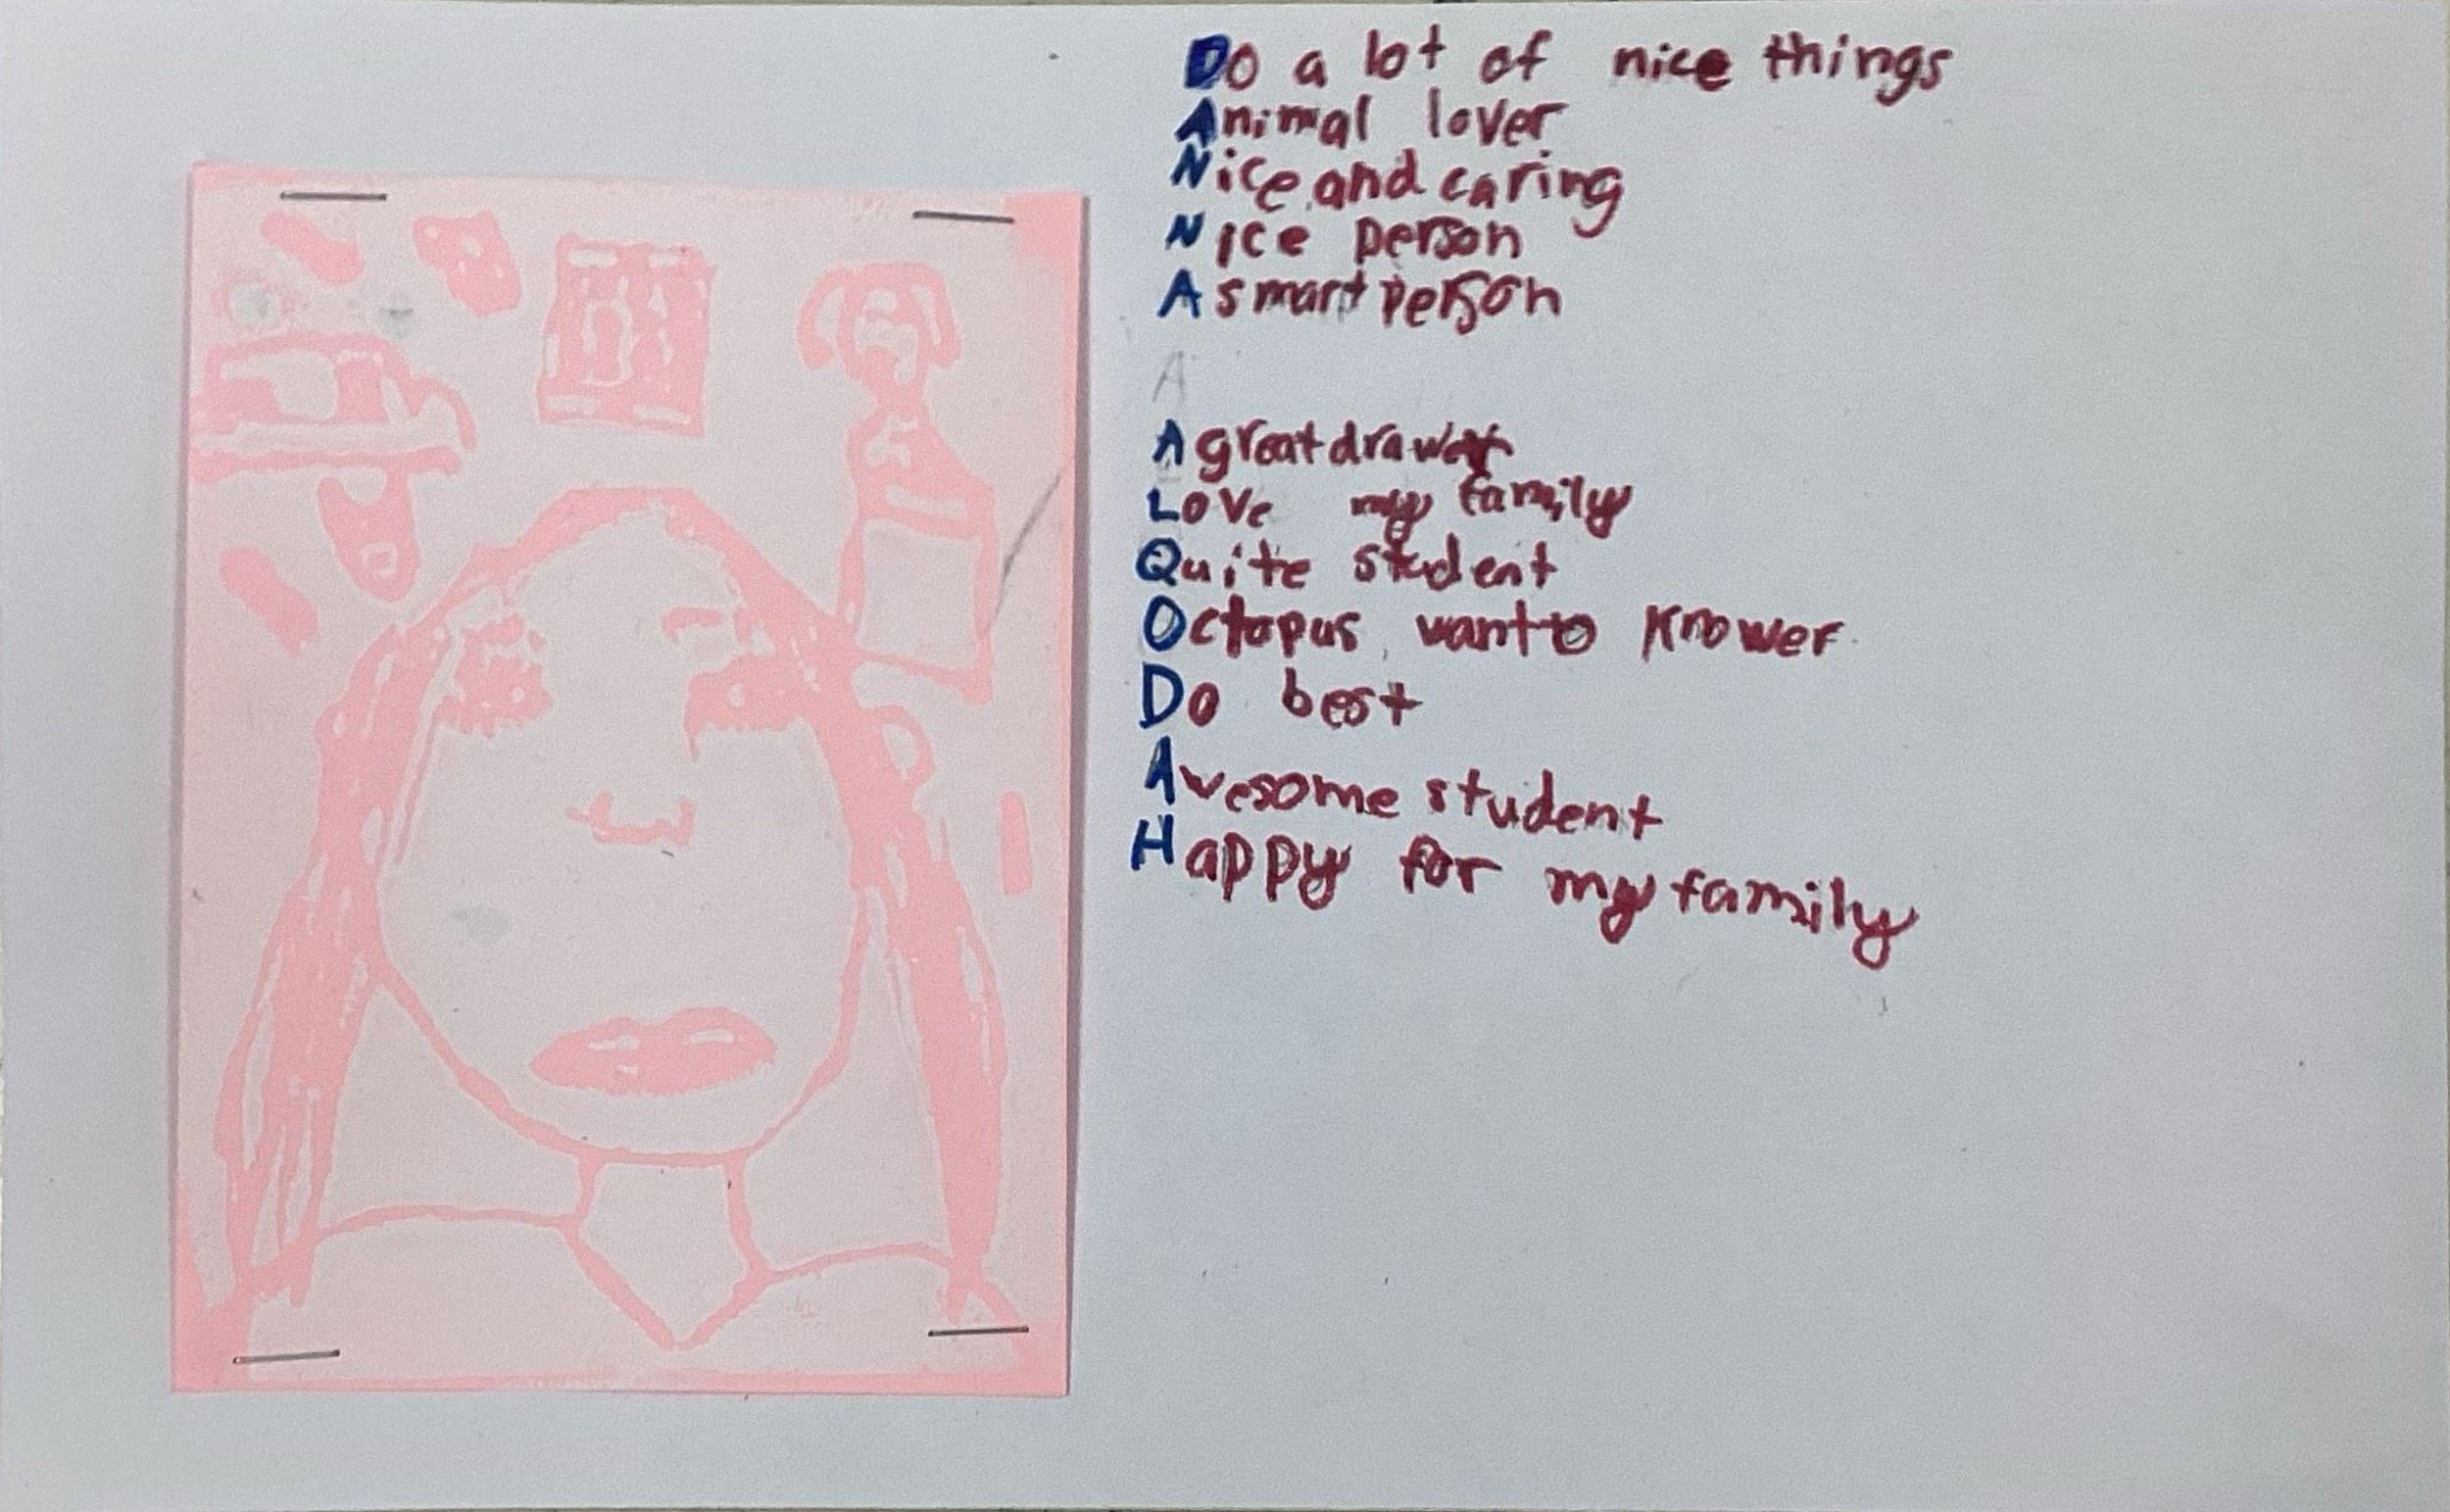 Do a lot of nice things
Animal lover
Nice and caring
Nice person
A smart person
A
A great drawer
Love my family
Quite student
Octopus want to knower
Do best
Awesome student
Happy for my family